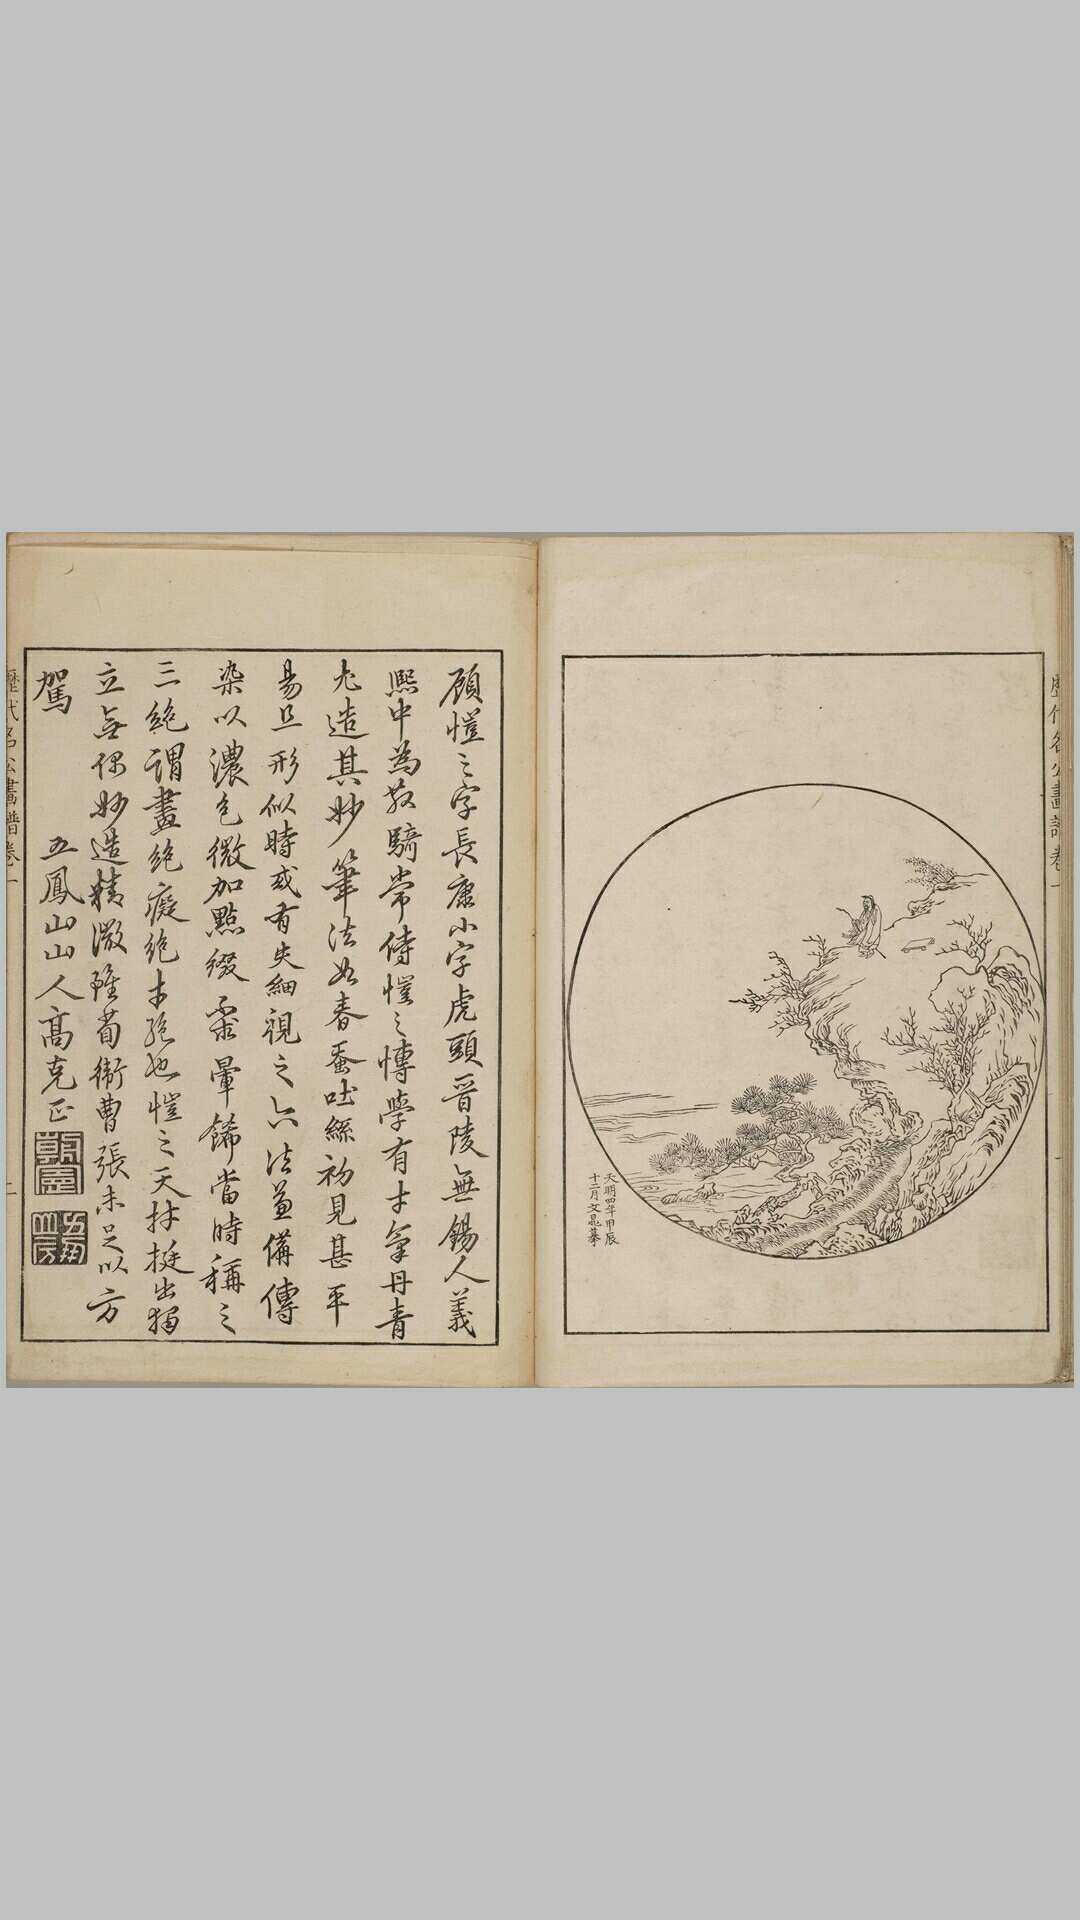 歷代名公畫譜卷一
天明四年甲辰
十二月文晁摹
顧愷之字長康小字虎頭晉陵無錫人義
熙中為散騎常侍愷之博學有才氣丹青
尤造其妙筆法如春蚕吐絲初見甚平
易且形似時或有失細視之六法兼備傳
染以濃色微加點綴不求暈餙當時稱之
三絶謂畫絶癡絶才絶也愷之天材挺出獨
立無偶妙造精微雖荀衛曹張未足以方
駕
五鳳山山人高克正
歷代名公畫譜卷一
二